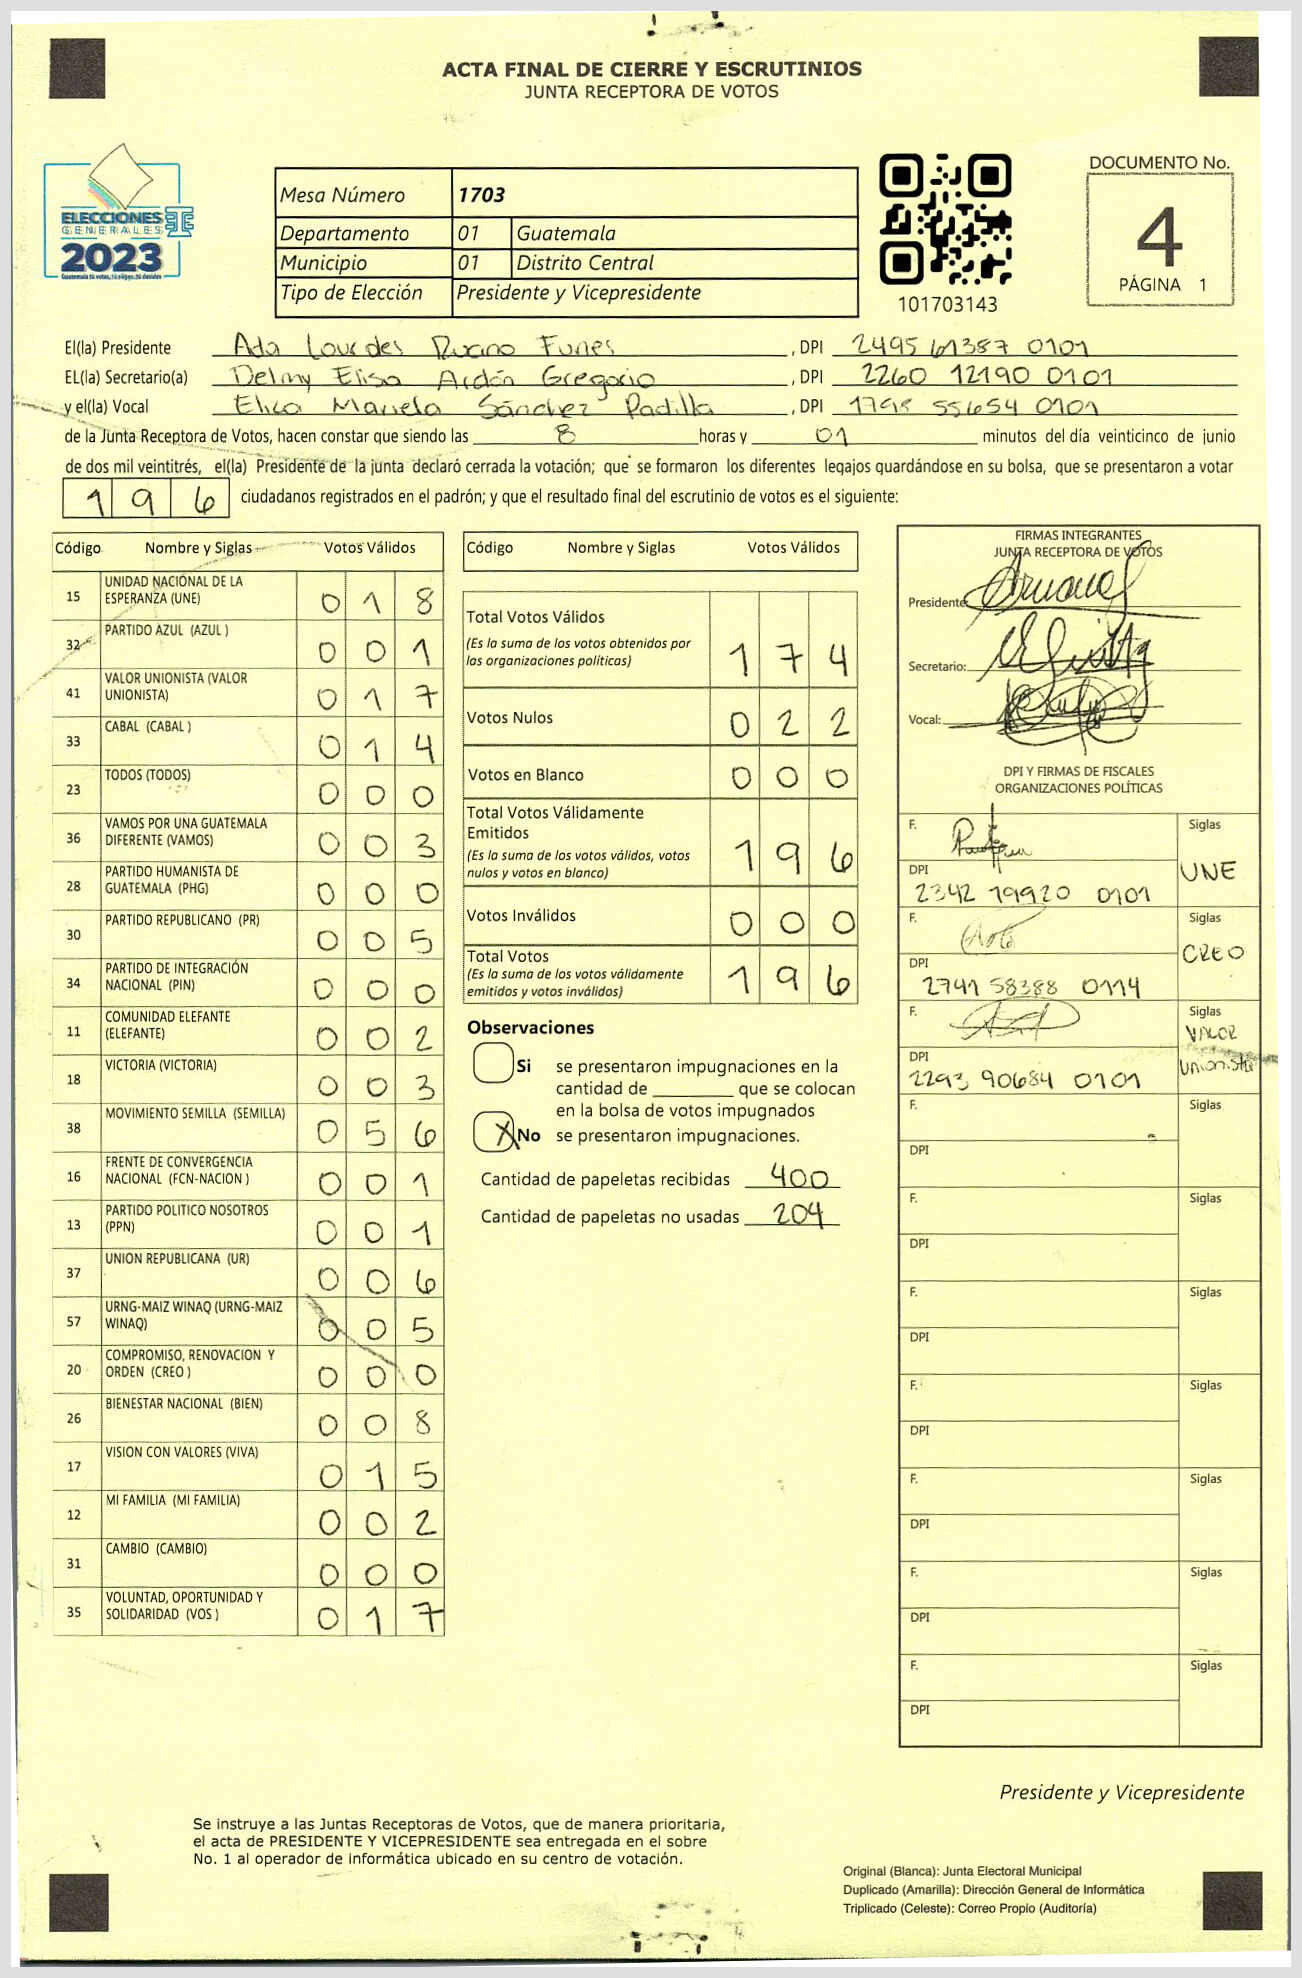 ACTA FINAL DE CIERRE Y ESCRUTINIOS
JUNTA RECEPTORA DE VOTOS
ELECCIONES
GENERALES
2023
Mesa Número 1703
Departamento 01 Guatemala
Municipio 01 Distrito Central
Tipo de Elección Presidente y Vicepresidente
101703143
DOCUMENTO No.
4
PÁGINA 1
El(la) Presidente Ada Lourdes Ruano Funes, DPI 2495 61387 0101
EL(la) Secretario(a) Delmy Elisa Ardón Gregorio, DPI 2260 12190 0101
y el(la) Vocal Elica Mariela Sánchez Padilla, DPI 1798 55654 0101
de la Junta Receptora de Votos, hacen constar que siendo las 8 horas y 01 minutos del día veinticinco de junio
de dos mil veintitrés, el(la) Presidente de la junta declaró cerrada la votación; que se formaron los diferentes legajos quardándose en su bolsa, que se presentaron a votar
196 ciudadanos registrados en el padrón; y que el resultado final del escrutinio de votos es el siguiente:
Código Nombre y Siglas Votos Válidos
15 UNIDAD NACIONAL DE LA ESPERANZA (UNE) 0 1 8
32 PARTIDO AZUL (AZUL ) 0 0 1
41 VALOR UNIONISTA (VALOR UNIONISTA) 0 1 7
33 CABAL (CABAL ) 0 1 4
23 TODOS (TODOS) 0 0 0
36 VAMOS POR UNA GUATEMALA DIFERENTE (VAMOS) 0 0 3
28 PARTIDO HUMANISTA DE GUATEMALA (PHG) 0 0 0
30 PARTIDO REPUBLICANO (PR) 0 0 5
34 PARTIDO DE INTEGRACIÓN NACIONAL (PIN) 0 0 0
11 COMUNIDAD ELEFANTE (ELEFANTE) 0 0 2
18 VICTORIA (VICTORIA) 0 0 3
38 MOVIMIENTO SEMILLA (SEMILLA) 0 5 6
16 FRENTE DE CONVERGENCIA NACIONAL (FCN-NACION ) 0 0 1
13 PARTIDO POLITICO NOSOTROS (PPN) 0 0 1
37 UNION REPUBLICANA (UR) 0 0 6
57 URNG-MAIZ WINAQ (URNG-MAIZ WINAQ) 0 0 5
20 COMPROMISO, RENOVACION Y ORDEN (CREO ) 0 0 0
26 BIENESTAR NACIONAL (BIEN) 0 0 8
17 VISION CON VALORES (VIVA) 0 1 5
12 MI FAMILIA (MI FAMILIA) 0 0 2
31 CAMBIO (CAMBIO) 0 0 0
35 VOLUNTAD, OPORTUNIDAD Y SOLIDARIDAD (VOS ) 0 1 7
Código Nombre y Siglas Votos Válidos
Total Votos Válidos 1 7 4
(Es la suma de los votos obtenidos por
las organizaciones políticas)
Votos Nulos 0 2 2
Votos en Blanco 0 0 0
Total Votos Válidamente
Emitidos 1 9 6
(Es la suma de los votos válidos, votos
nulos y votos en blanco)
Votos Inválidos 0 0 0
Total Votos 1 9 6
(Es la suma de los votos válidamente
emitidos y votos inválidos)
Observaciones
Si se presentaron impugnaciones en la
cantidad de ________ que se colocan
en la bolsa de votos impugnados
X No se presentaron impugnaciones.
Cantidad de papeletas recibidas 400
Cantidad de papeletas no usadas 204
FIRMAS INTEGRANTES
JUNTA RECEPTORA DE VOTOS
Presidente:
Secretario:
Vocal:
DPI Y FIRMAS DE FISCALES
ORGANIZACIONES POLÍTICAS
F. Siglas
UNE
DPI
2342 19920 0101
F. Siglas
CREO
DPI
2741 58388 0114
F. Siglas
VALOR
Unionista
DPI
2293 90684 0101
F. Siglas
DPI
F. Siglas
DPI
F. Siglas
DPI
F. Siglas
DPI
F. Siglas
DPI
F. Siglas
DPI
F. Siglas
DPI
Presidente y Vicepresidente
Se instruye a las Juntas Receptoras de Votos, que de manera prioritaria,
el acta de PRESIDENTE Y VICEPRESIDENTE sea entregada en el sobre
No. 1 al operador de informática ubicado en su centro de votación.
Original (Blanca): Junta Electoral Municipal
Duplicado (Amarilla): Dirección General de Informática
Triplicado (Celeste): Correo Propio (Auditoría)